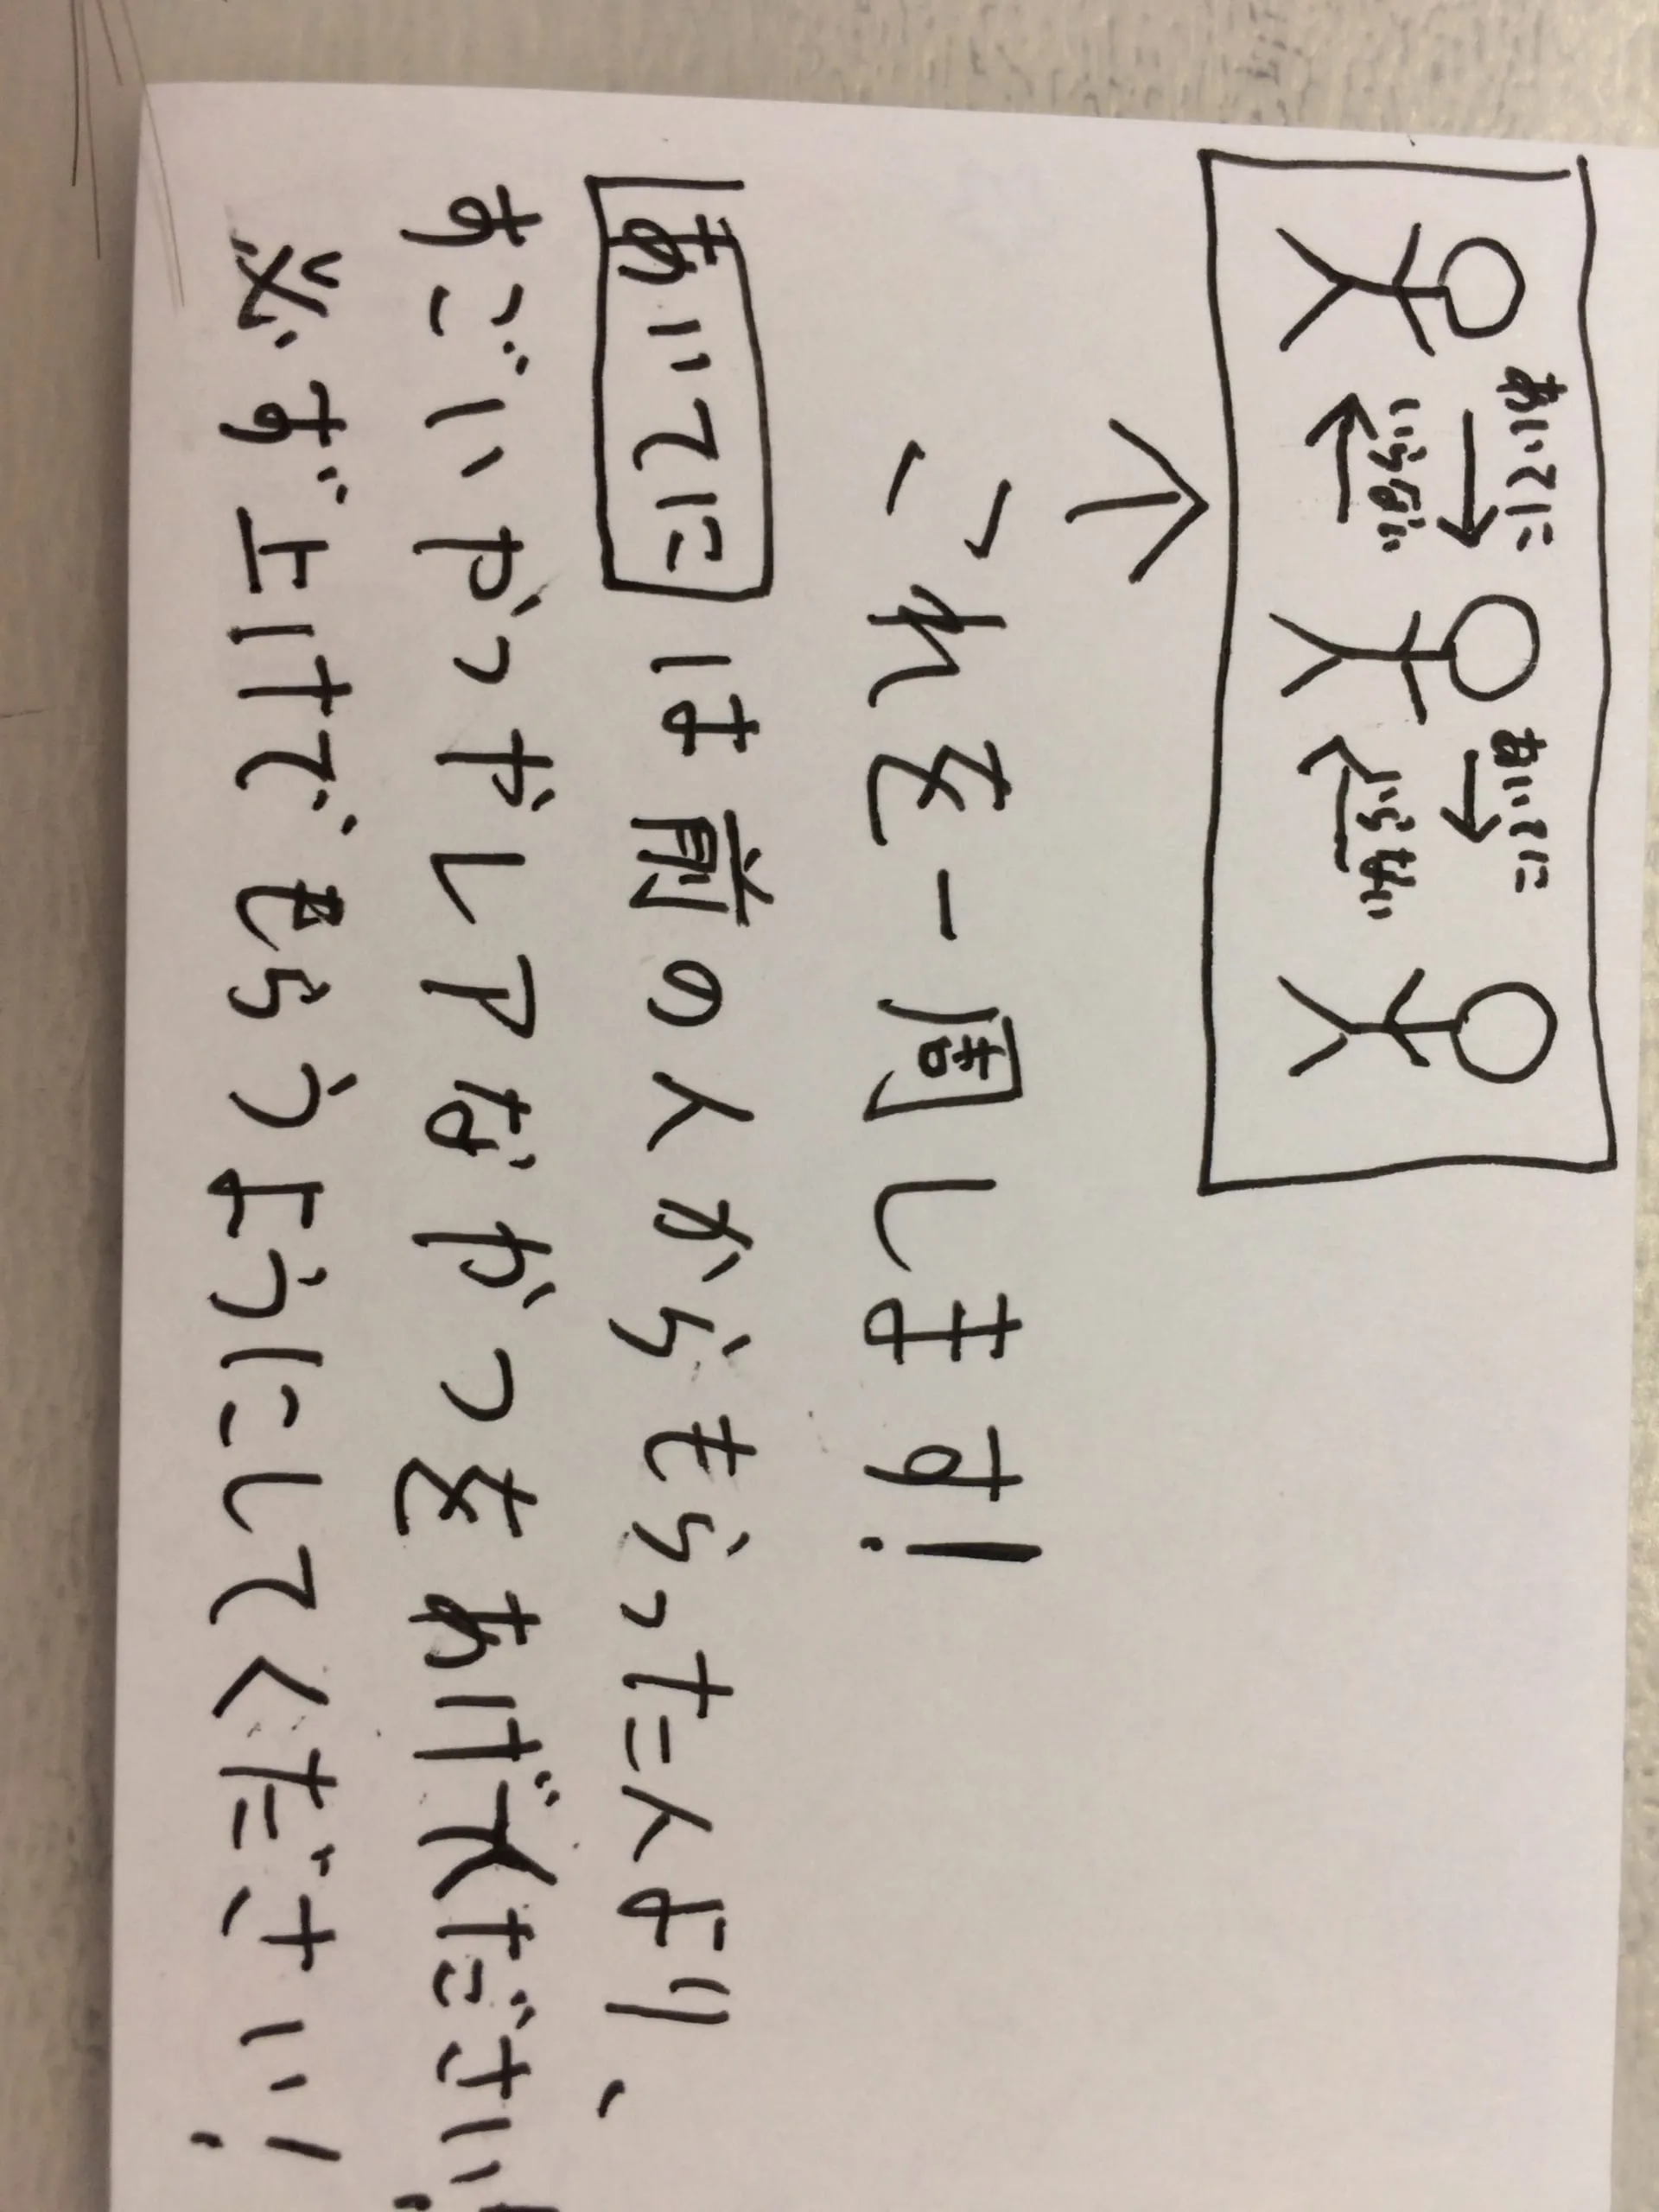 あいてに あいてに
いらない いらない
これを一周します!
あいてには前の人からもらった人より、
すごいやつやレアなやつをあげてください!
必ず上けでもらうようにしてください!